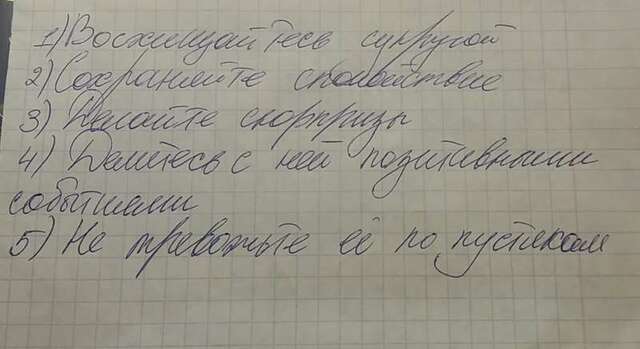 1) Восхищайтесь супругой
2) Сохраняйте спокойствие
3) Делайте сюрпризы
4) Делитесь с ней позитивными
событиями
5) Не тревожьте её по пустякам